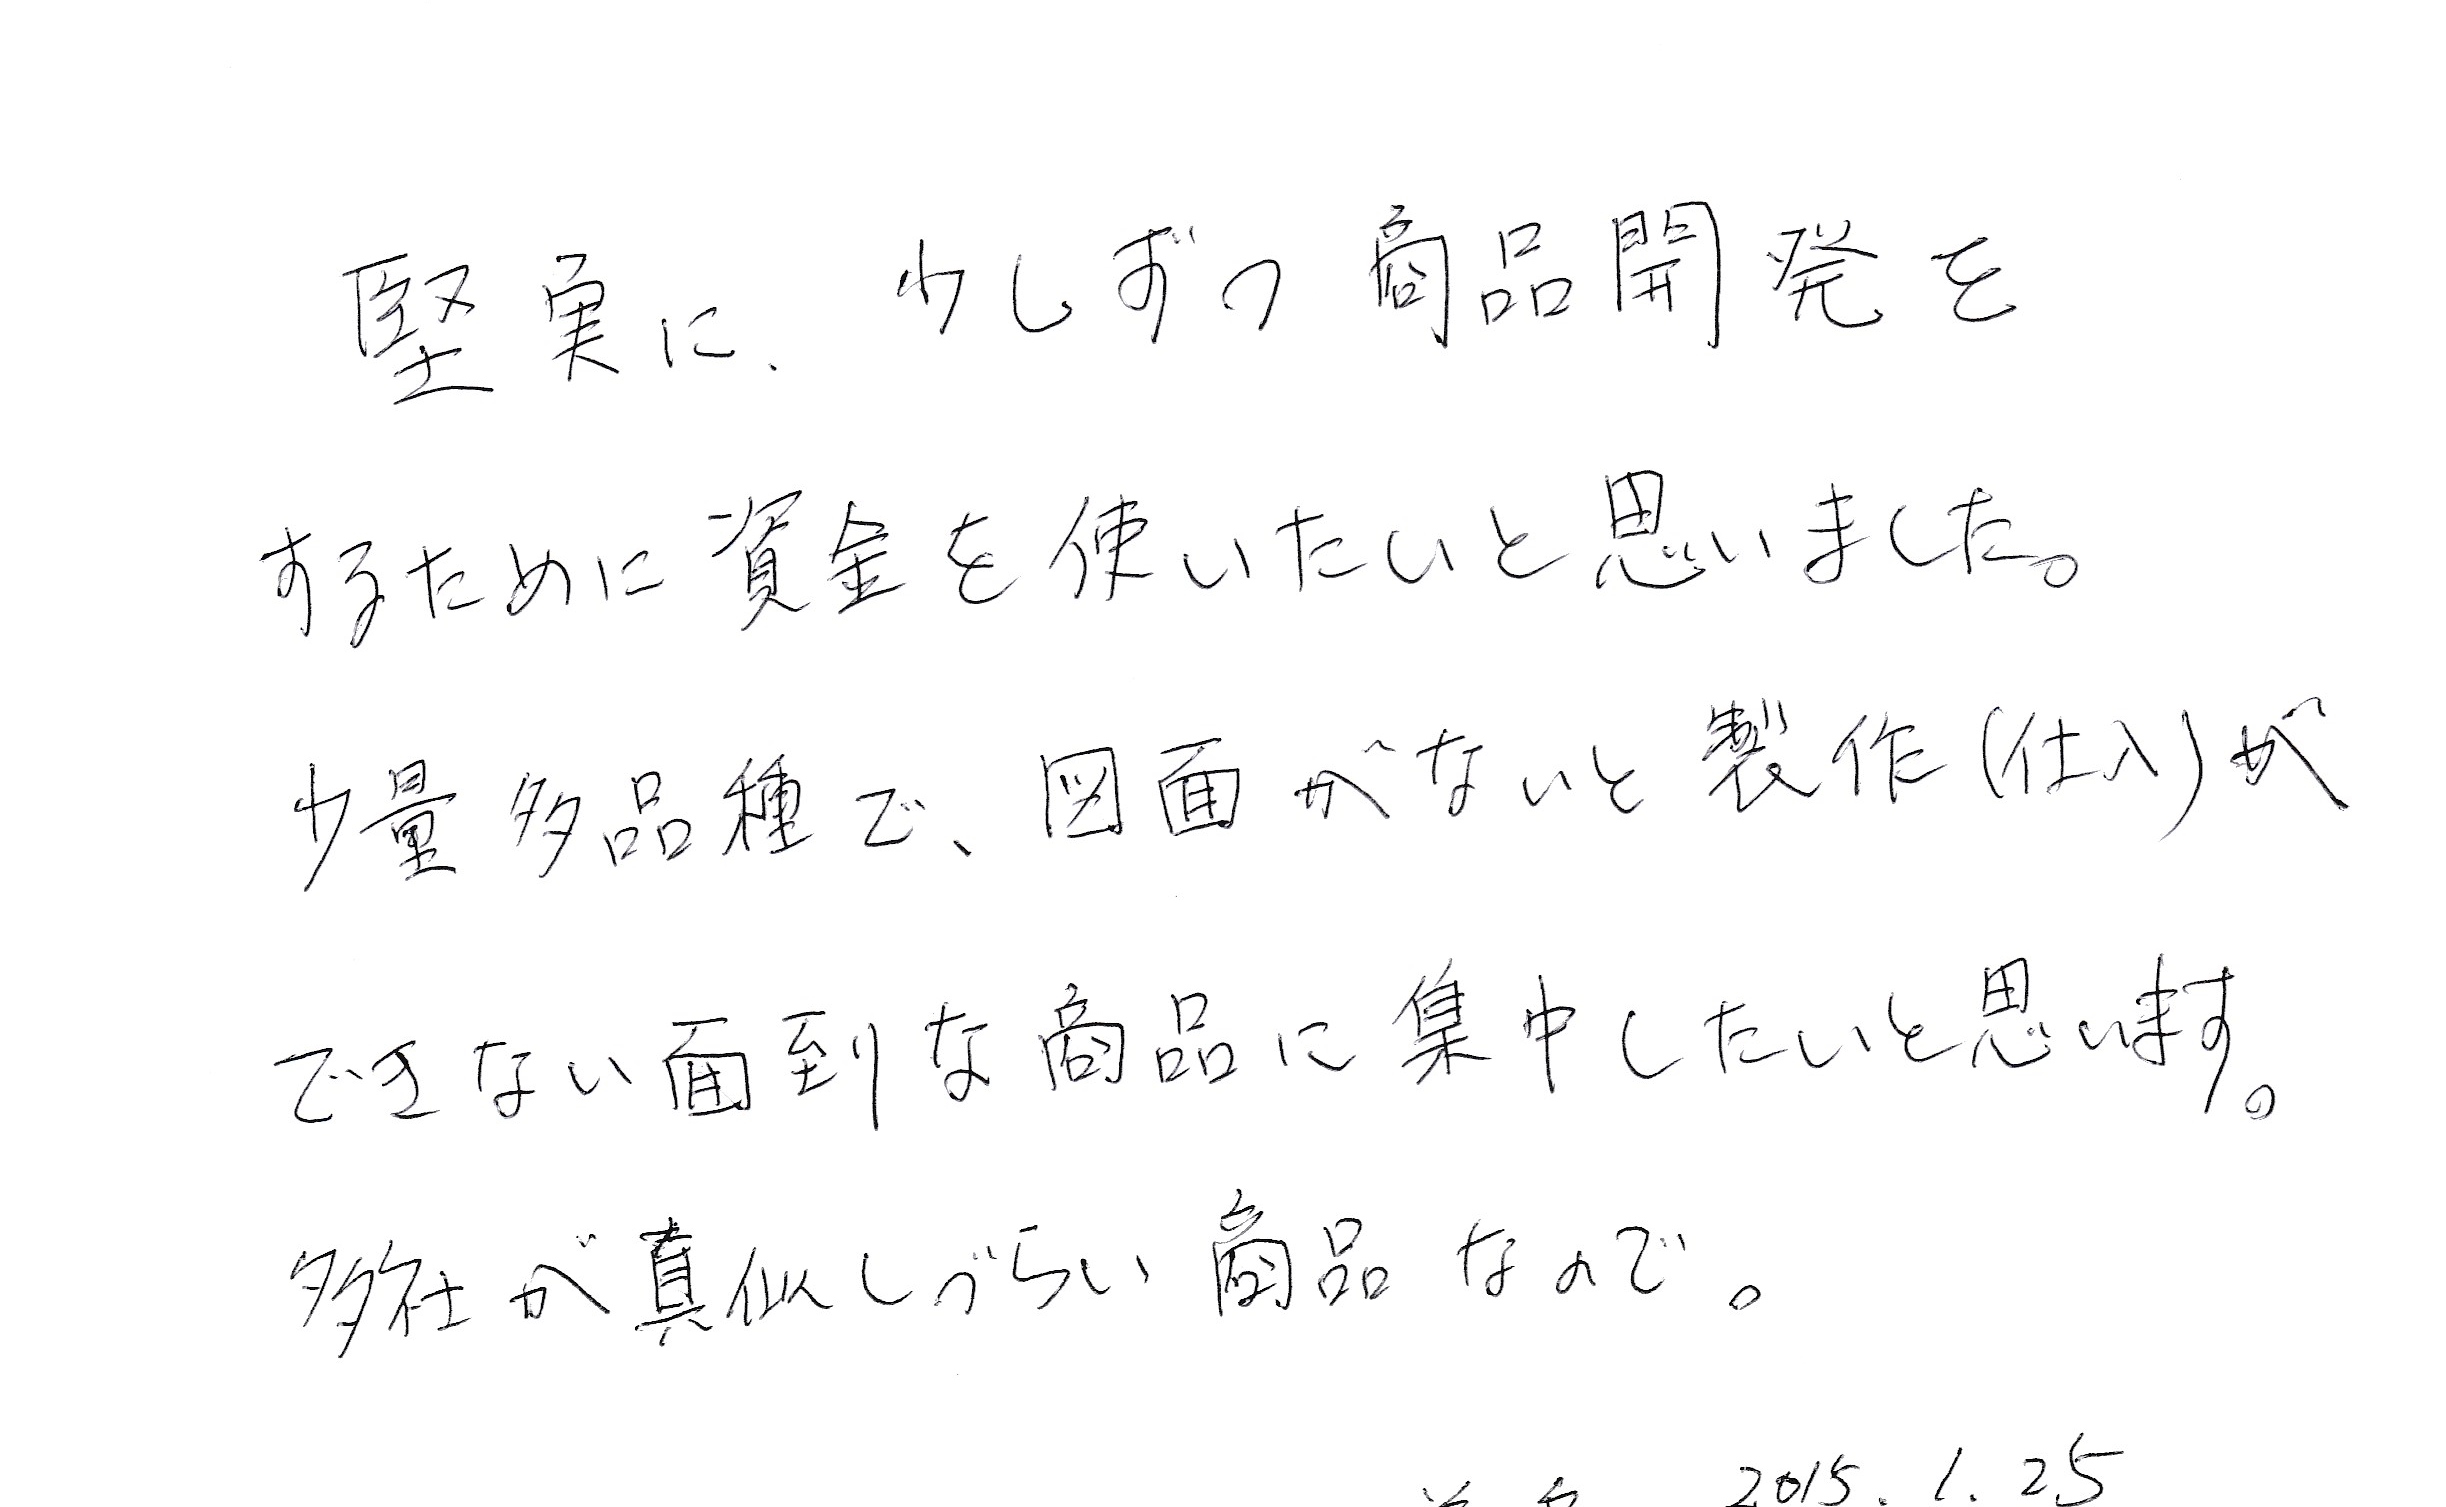 堅実に、少しずつ商品開発を
するために資金を使いたいと思いました。
少量多品種で、図面がないと製作(仕入)が
できない面到な商品に集中したいと思います。
多社が真似しづらい商品なので。
2015.1.25